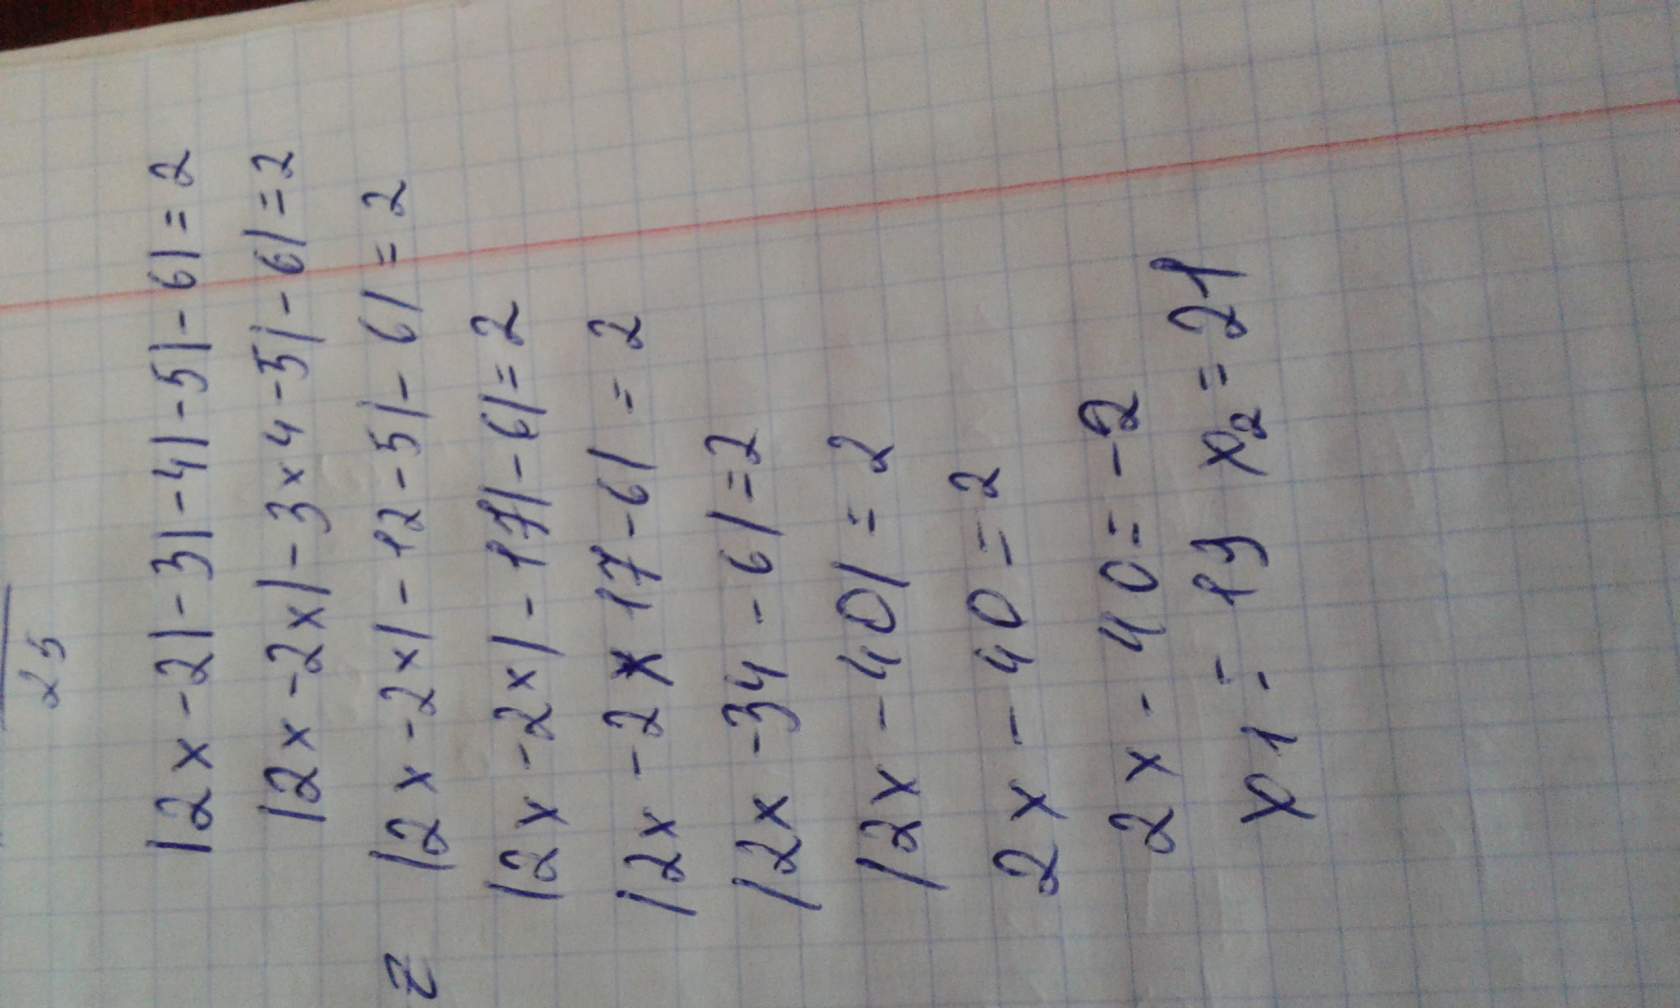 25
|2x-2|-3|-4|-5|-6|=2
|2x-2x|-3x4-5|-6|=2
z |2x-2x|-12-5|-6|=2
|2x-2x|-17|-6|=2
|2x-2x17-6|=2
|2x-34-6|=2
|2x-40|=2
2x-40=2
2x-40=-2
x1=-19 x2=21